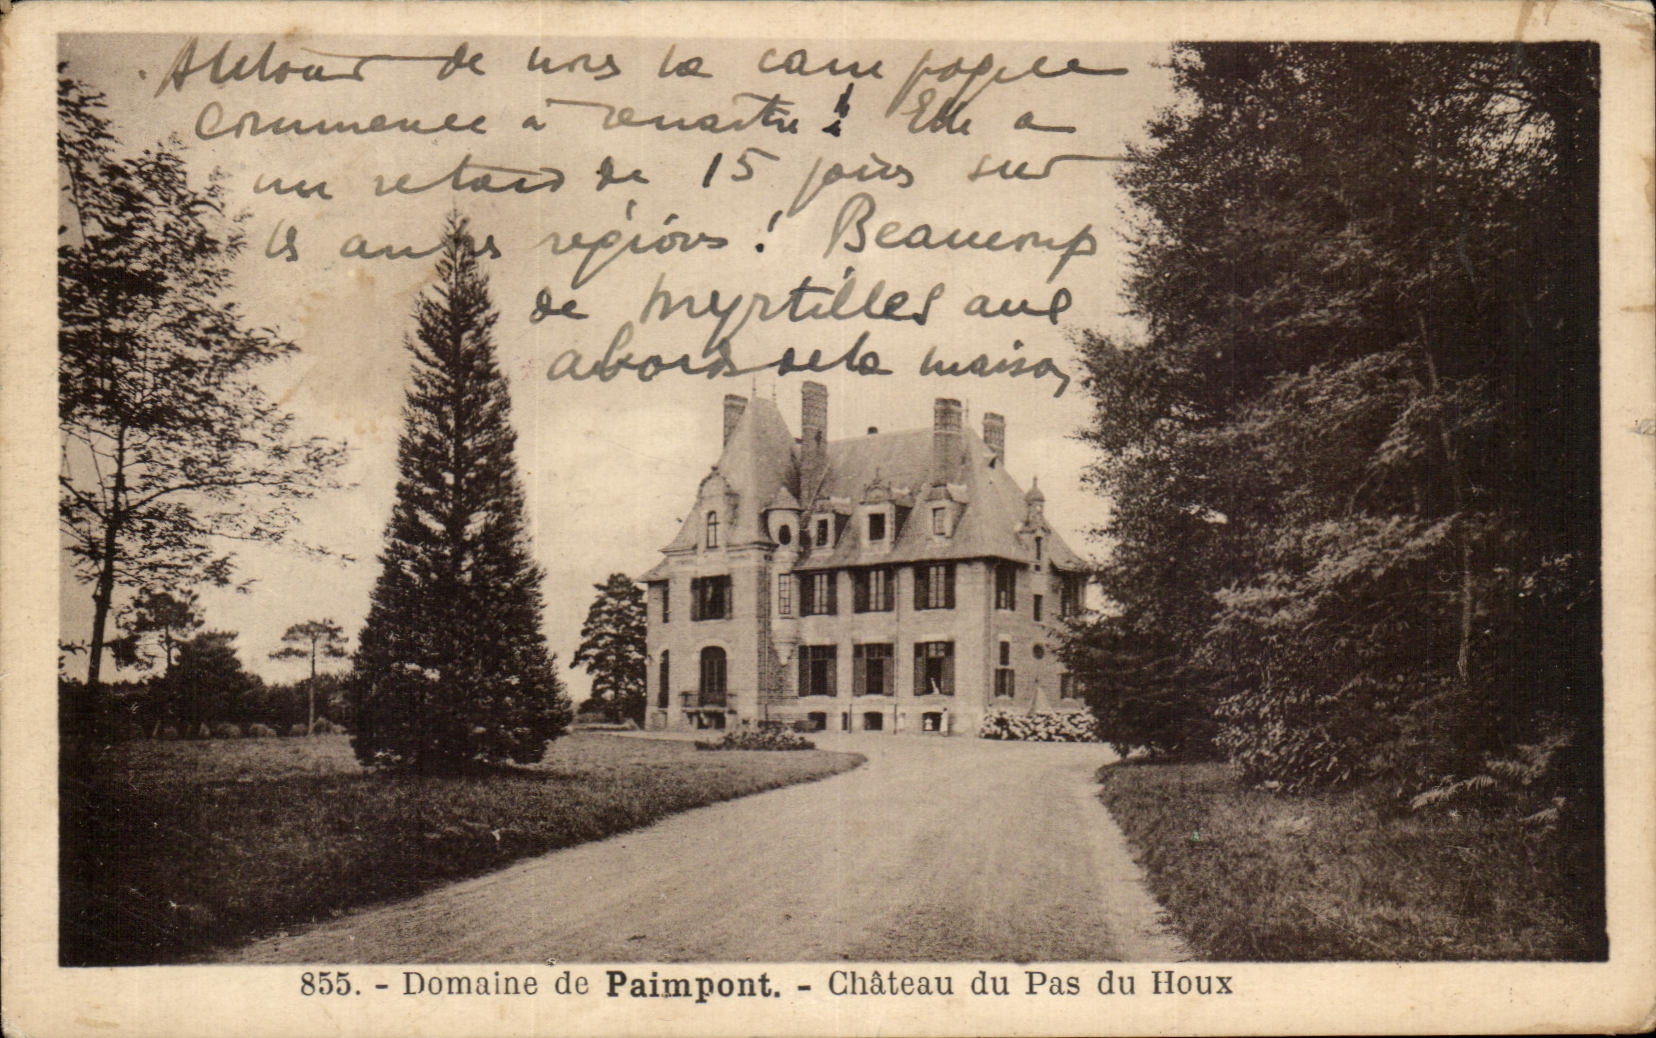 Autour de nous la campagne
commence à renaitre ! Elle a
un retard de 15 jours sur
les autres régions ! Beaucoup
de myrtilles aux
abords de la maison
855. - Domaine de Paimpont. - Château du Pas du Houx